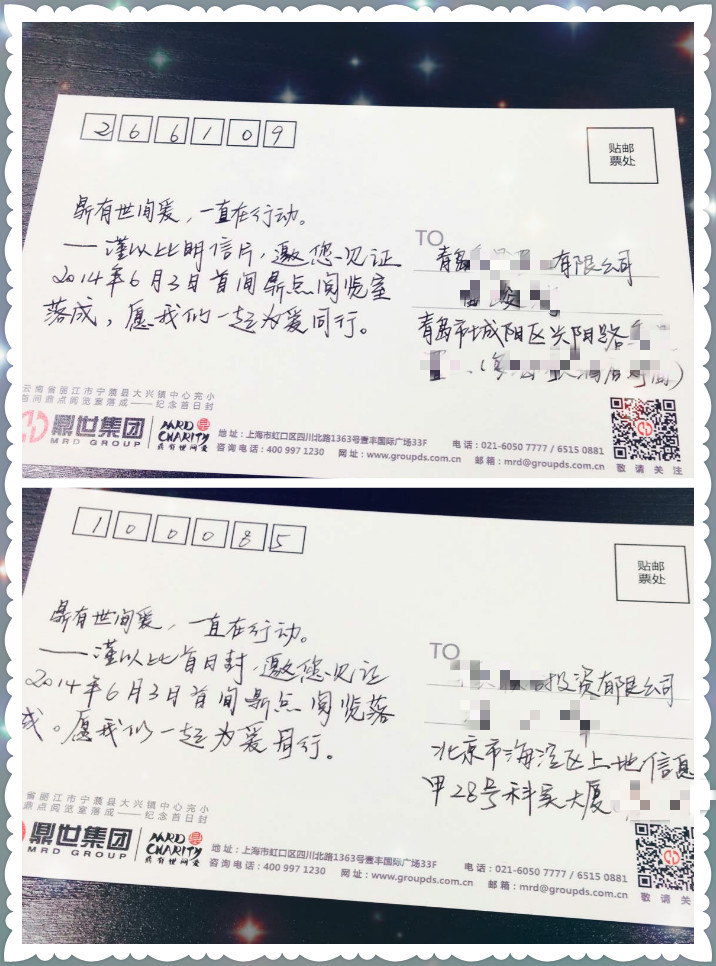 266109
贴邮
票处
鼎有世间爱，一直在行动。
——谨以此明信片，邀您见证
2014年6月3日首间鼎点阅览室
落成，愿我们一起为爱同行。
TO
青岛 有限公司
青岛市城阳区兴阳路
云南省丽江市宁蒗县大兴镇中心完小
首间鼎点阅览室落成——纪念首日封
鼎世集团
MRD GROUP
MRD
CHARITY
鼎有世间爱
地址：上海市虹口区四川北路1363号壹丰国际广场33F
咨询电话：400 997 1230 网址：www.groupds.com.cn
电话：021-6050 7777 / 6515 0881
邮箱：mrd@groupds.com.cn
敬请关注
100085
贴邮
票处
鼎有世间爱，一直在行动。
——谨以此首日封，邀您见证
2014年6月3日首间鼎点阅览落
成。愿我们一起为爱同行。
TO
投资有限公司
北京市海淀区上地信息
甲28号科实大厦
省丽江市宁蒗县大兴镇中心完小
鼎点阅览室落成——纪念首日封
鼎世集团
MRD GROUP
MRD
CHARITY
鼎有世间爱
地址：上海市虹口区四川北路1363号壹丰国际广场33F
咨询电话：400 997 1230 网址：www.groupds.com.cn
电话：021-6050 7777 / 6515 0881
邮箱：mrd@groupds.com.cn
敬请关